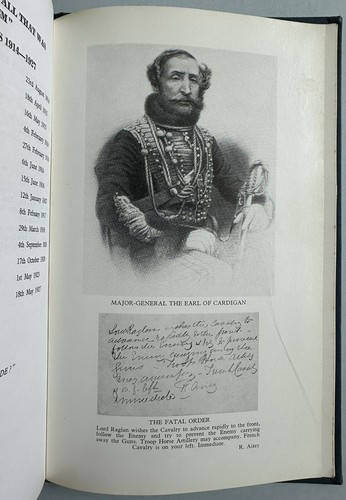 ALL THAT WAS
1914—1927
23rd August
18th April
16th May
4th February
27th February
6th June
15th June
12th January
8th February 1917
29th March
4th September
17th October
1st May 1925
18th May 1927
DE ?"
MAJOR-GENERAL THE EARL OF CARDIGAN
Lord Raglan wishes the Cavalry to
advance rapidly to the front –
follow the Enemy & try to prevent
the Enemy carrying away the
Guns – Troop Horse Artillery
may accompany – French Cavalry
is on yr left
R Airey
Immediate
THE FATAL ORDER
Lord Raglan wishes the Cavalry to advance rapidly to the front,
follow the Enemy and try to prevent the Enemy carrying
away the Guns. Troop Horse Artillery may accompany. French
Cavalry is on your left. Immediate. R. Airey